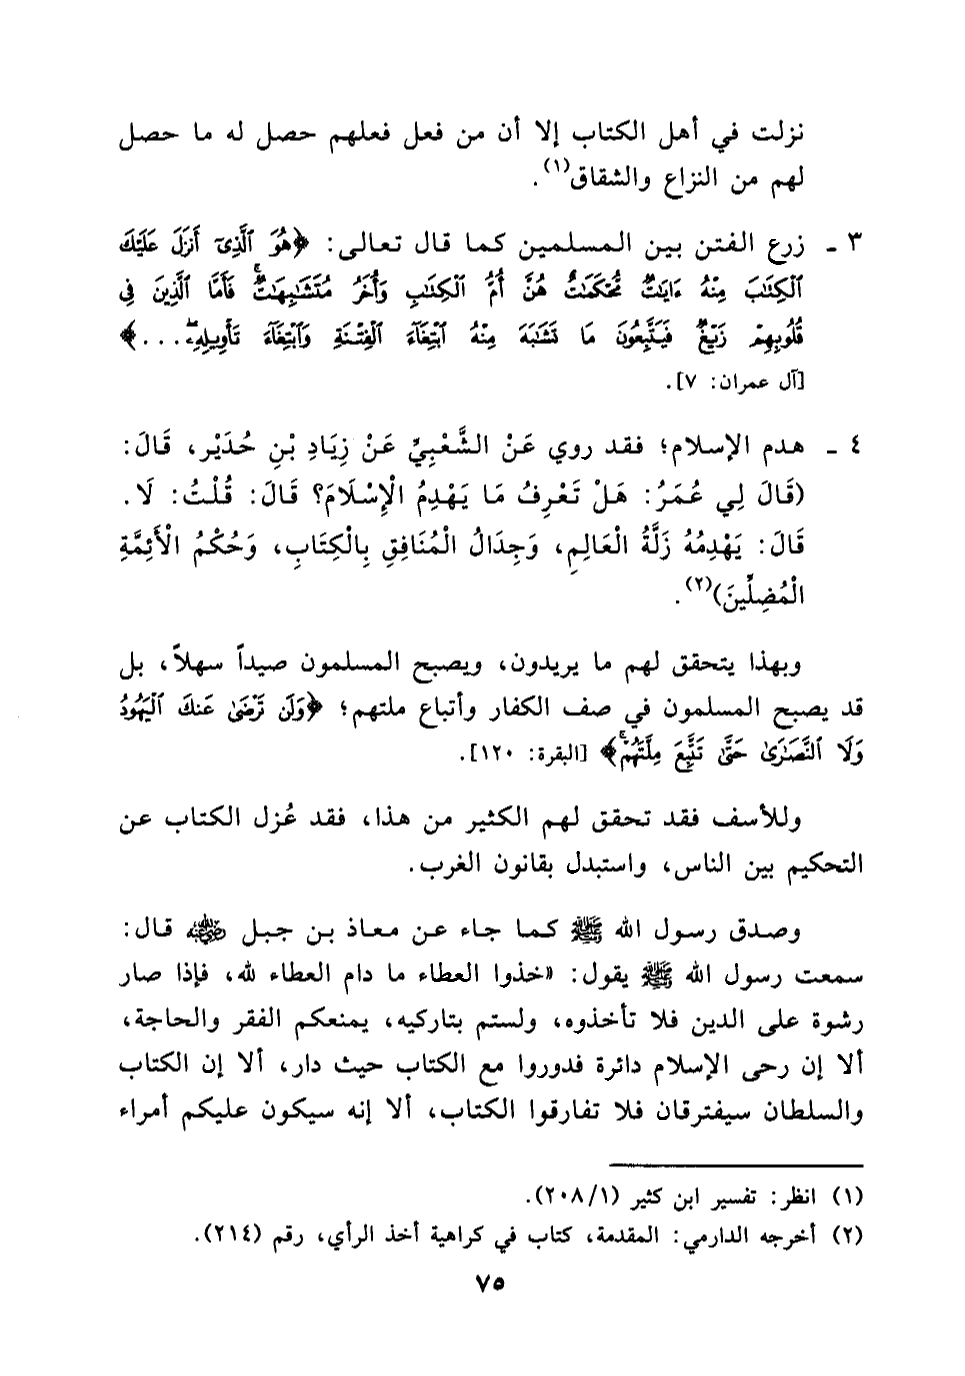 نزلت في أهل الكتاب إلا أن من فعل فعلهم حصل له ما حصل
لهم من النزاع والشقاق(١).
٣ ـ زرع الفتن بين المسلمين كما قال تعالى: ﴿هُوَ ٱلَّذِىٓ أَنزَلَ عَلَيْكَ
ٱلْكِتَٰبَ مِنْهُ ءَايَٰتٌ مُّحْكَمَٰتٌ هُنَّ أُمُّ ٱلْكِتَٰبِ وَأُخَرُ مُتَشَٰبِهَٰتٌۖ فَأَمَّا ٱلَّذِينَ فِى
قُلُوبِهِمْ زَيْغٌ فَيَتَّبِعُونَ مَا تَشَٰبَهَ مِنْهُ ٱبْتِغَآءَ ٱلْفِتْنَةِ وَٱبْتِغَآءَ تَأْوِيلِهِۦۖ...﴾
[آل عمران: ٧].
٤ ـ هدم الإسلام؛ فقد روي عَنْ الشَّعْبِيِّ عَنْ زِيَادِ بْنِ حُدَيْر، قَالَ:
(قَالَ لِي عُمَرُ: هَلْ تَعْرِفُ مَا يَهْدِمُ الْإِسْلَامَ؟ قَالَ: قُلْتُ: لَا.
قَالَ: يَهْدِمُهُ زَلَّةُ الْعَالِمِ، وَجِدَالُ الْمُنَافِقِ بِالْكِتَابِ، وَحُكْمُ الْأَئِمَّةِ
الْمُضِلِّينَ)(٢).
وبهذا يتحقق لهم ما يريدون، ويصبح المسلمون صيداً سهلاً، بل
قد يصبح المسلمون في صف الكفار وأتباع ملتهم؛ ﴿وَلَن تَرْضَىٰ عَنكَ ٱلْيَهُودُ
وَلَا ٱلنَّصَٰرَىٰ حَتَّىٰ تَتَّبِعَ مِلَّتَهُمْۗ﴾ [البقرة: ١٢٠].
وللأسف فقد تحقق لهم الكثير من هذا، فقد عُزل الكتاب عن
التحكيم بين الناس، واستبدل بقانون الغرب.
وصدق رسول الله ﷺ كما جاء عن معاذ بن جبل رضي الله عنه قال:
سمعت رسول الله ﷺ يقول: «خذوا العطاء ما دام العطاء لله، فإذا صار
رشوة على الدين فلا تأخذوه، ولستم بتاركيه، يمنعكم الفقر والحاجة،
ألا إن رحى الإسلام دائرة فدوروا مع الكتاب حيث دار، ألا إن الكتاب
والسلطان سيفترقان فلا تفارقوا الكتاب، ألا إنه سيكون عليكم أمراء
(١) انظر: تفسير ابن كثير (٢٠٨/١).
(٢) أخرجه الدارمي: المقدمة، كتاب في كراهية أخذ الرأي، رقم (٢١٤).
٧٥